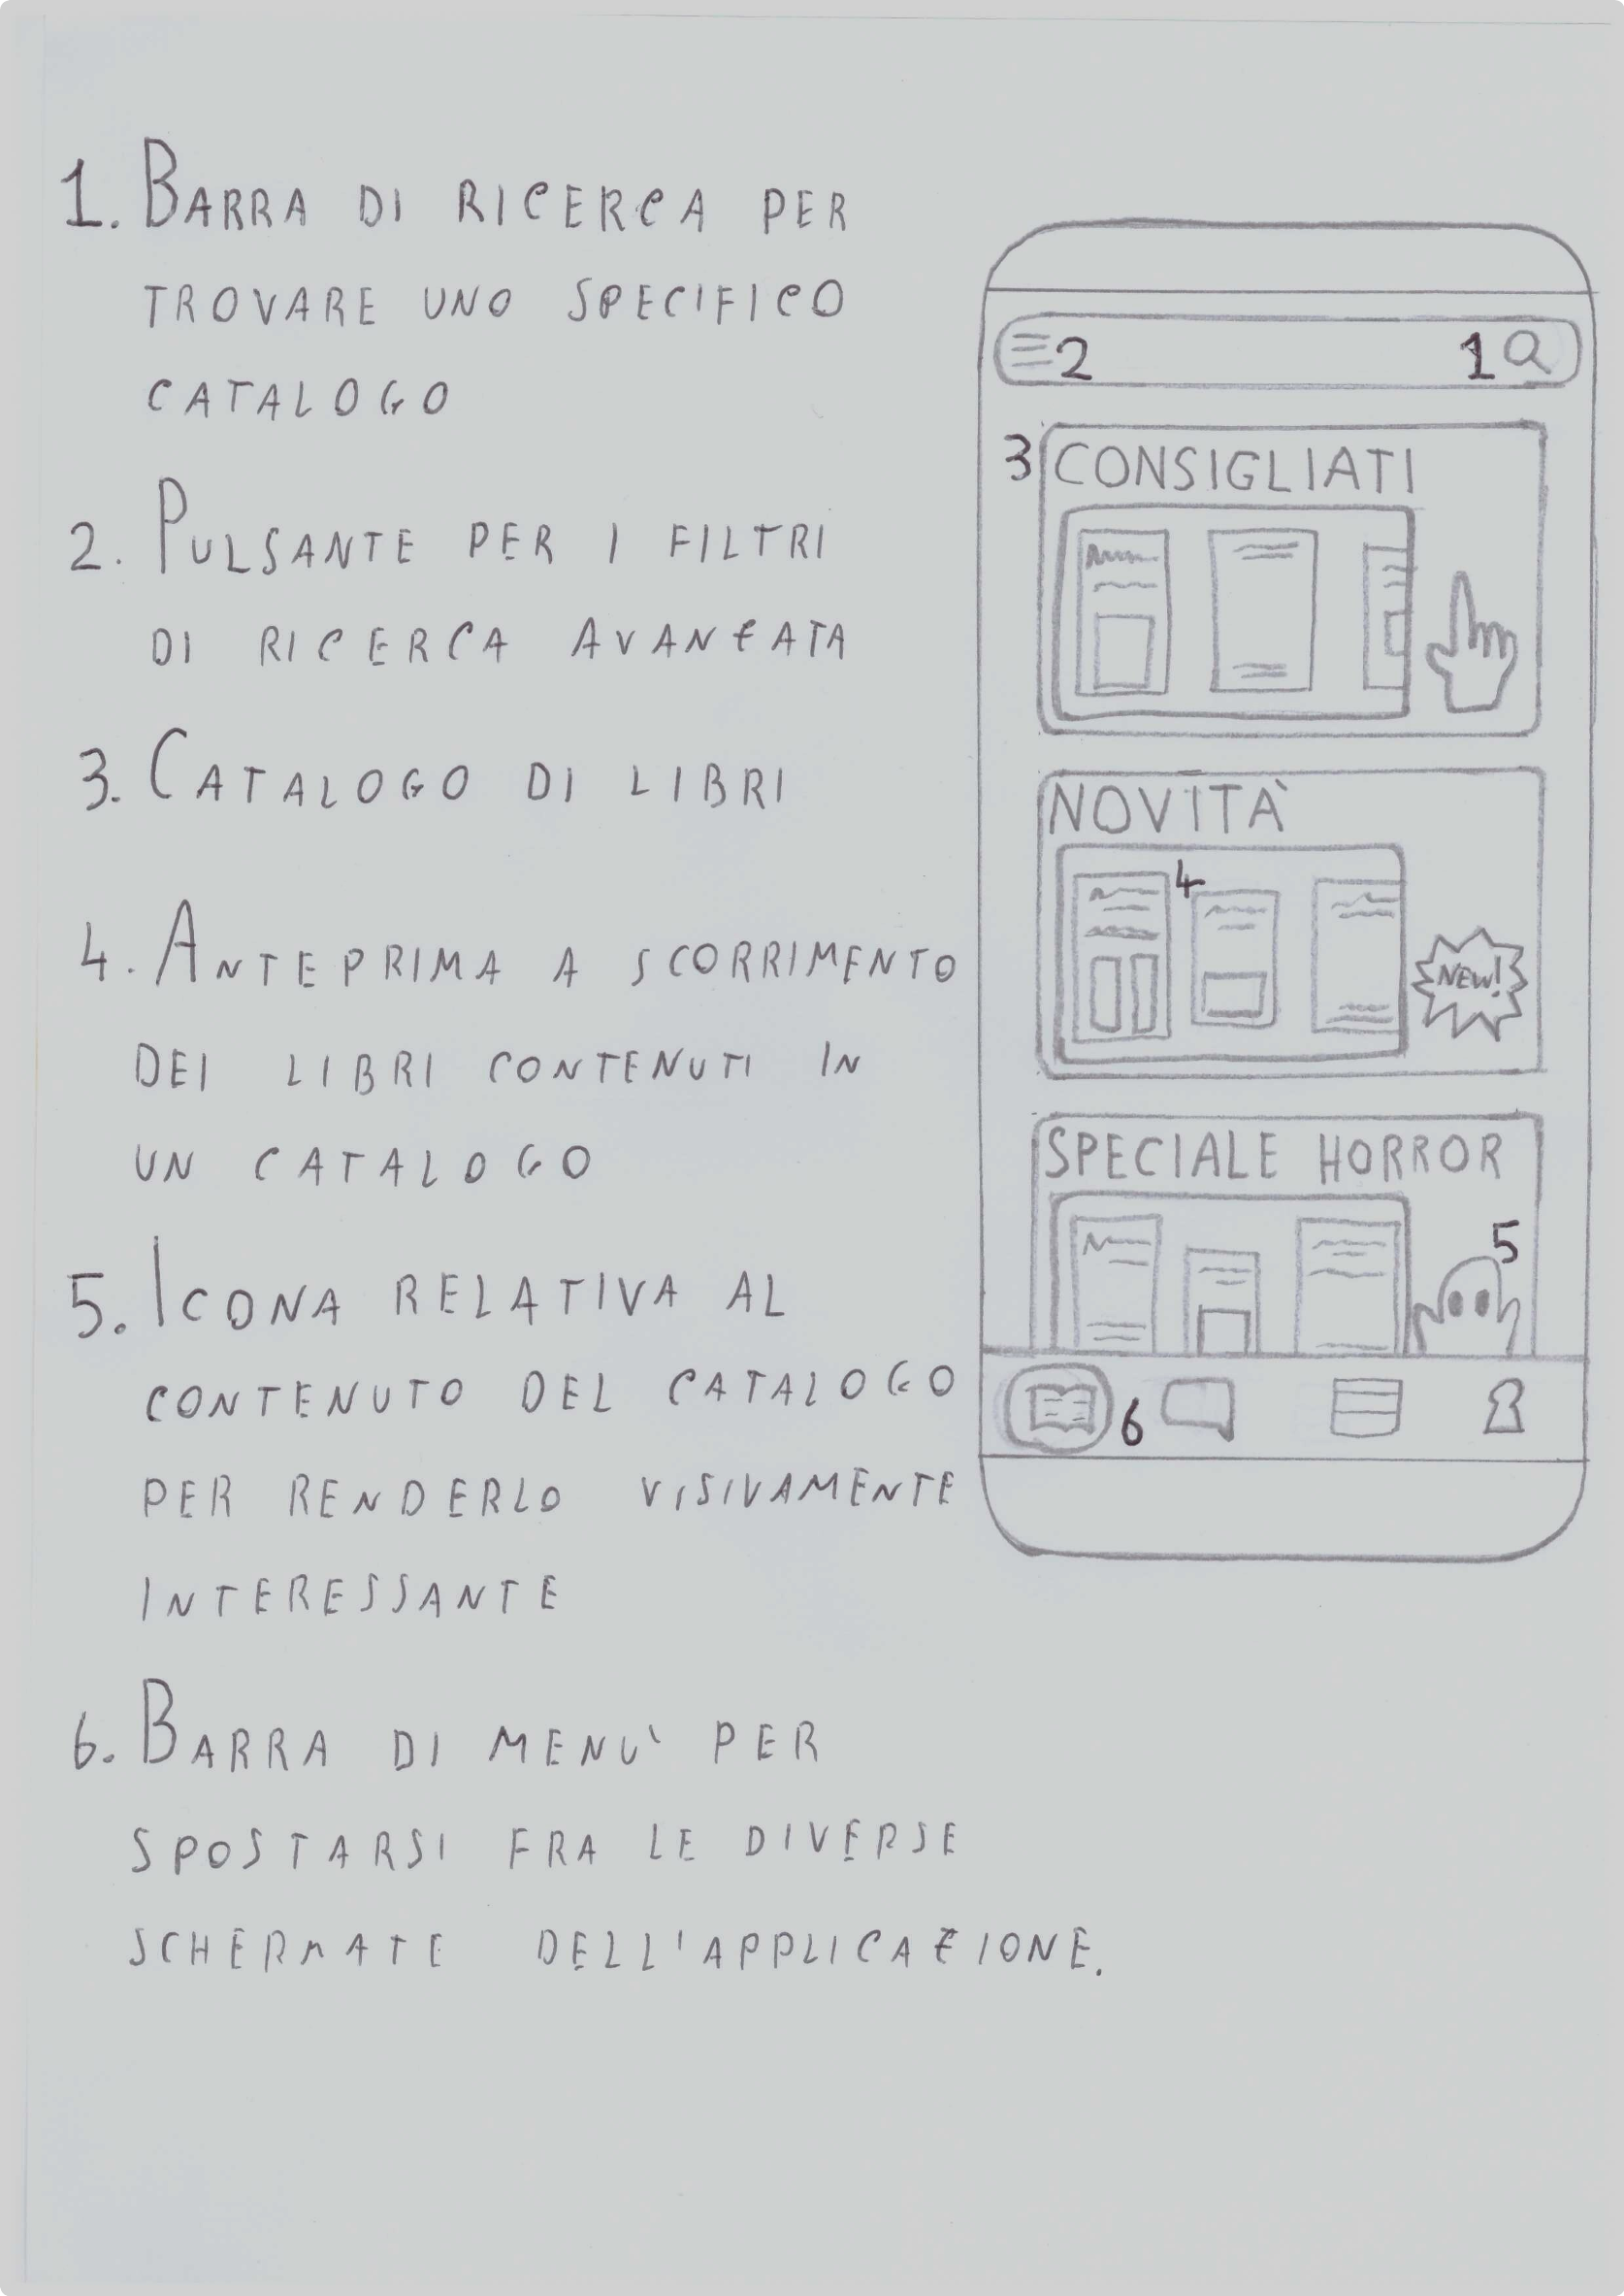 1. BARRA DI RICERCA PER
TROVARE UNO SPECIFICO
CATALOGO
2. PULSANTE PER I FILTRI
DI RICERCA AVANZATA
3. CATALOGO DI LIBRI
4. ANTEPRIMA A SCORRIMENTO
DEI LIBRI CONTENUTI IN
UN CATALOGO
5. ICONA RELATIVA AL
CONTENUTO DEL CATALOGO
PER RENDERLO VISIVAMENTE
INTERESSANTE
6. BARRA DI MENU' PER
SPOSTARSI FRA LE DIVERSE
SCHERMATE DELL'APPLICAZIONE.
2 1
3 CONSIGLIATI
NOVITÀ
4
NEW!
SPECIALE HORROR
5
6